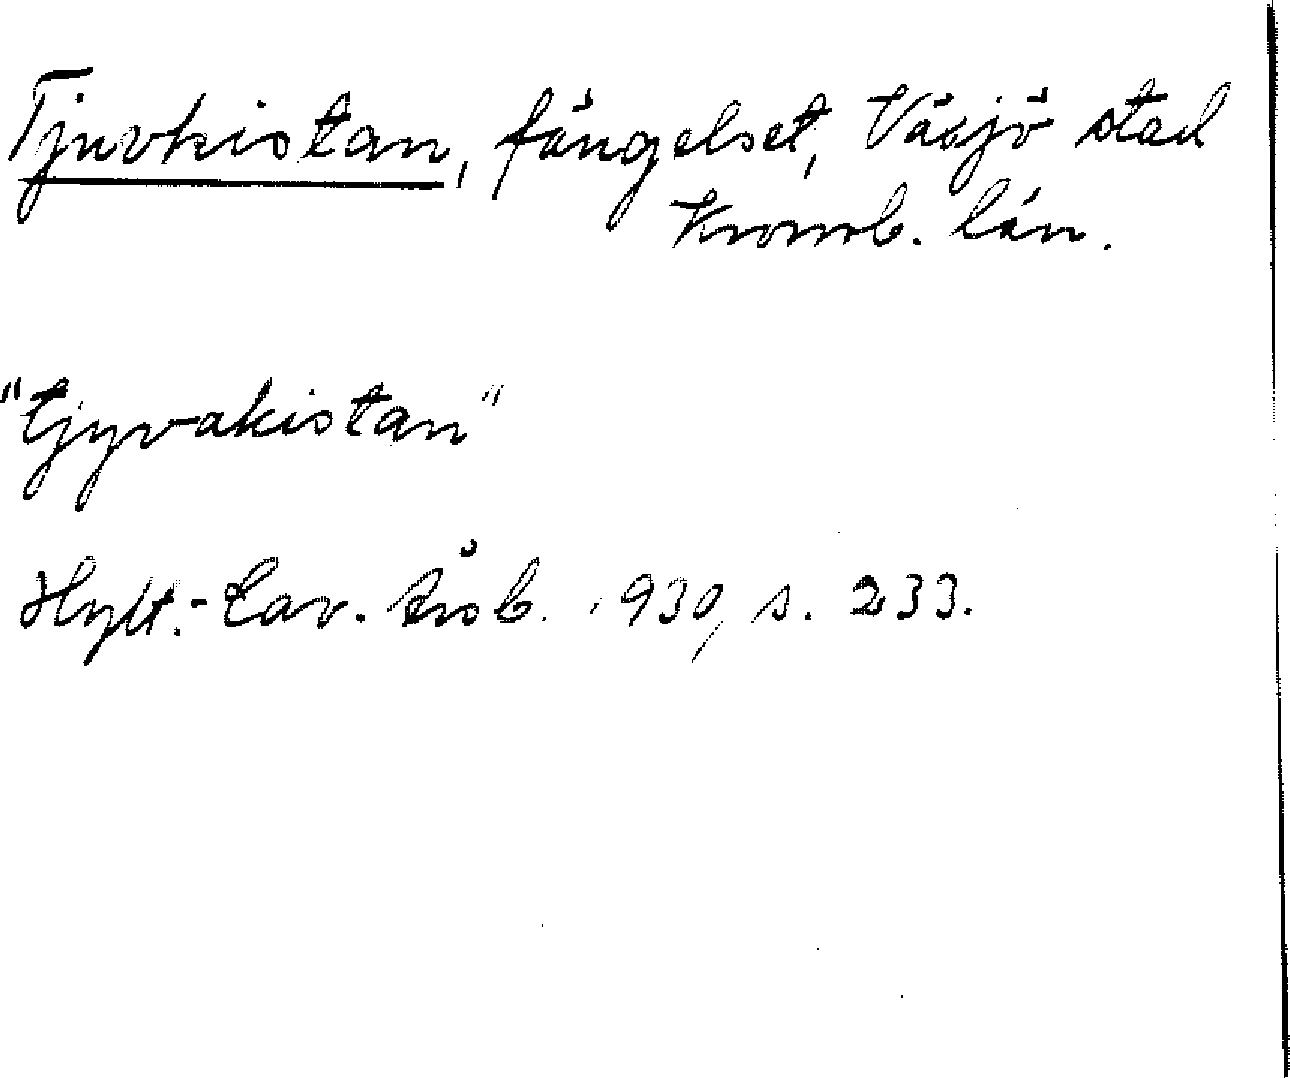 Tjuvkistan, fängelset, Växjö stad
Kronob. län.
"tjyvakistan"
Hylt.-Cav. Årsb. 1930, s. 233.